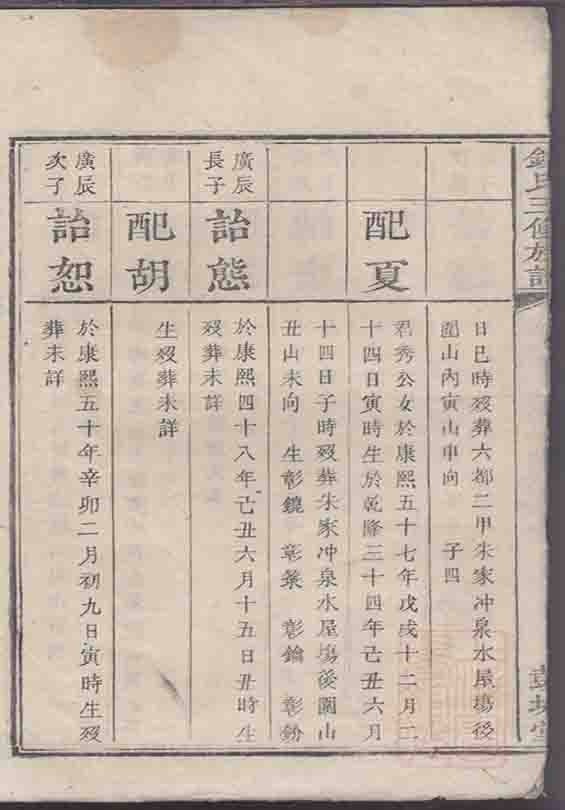 氏三修族
日巳時歿葬六都二甲朱家冲泉水屋塲後
圍山內寅山申向 子四
配夏
君秀公女於康熙五十七年戊戌十二月二
十四日寅時生於乾隆三十四年己丑六月
十四日子時歿葬朱家冲泉水屋塲後圍山
丑山未向 生彰鐃 彰 彰鑰 彰鈖
廣辰
長子
詒態
於康熙四十八年己丑六月十五日丑時生
歿葬未詳
配胡
生歿葬未詳
廣辰
次子
詒恕
於康熙五十年辛卯二月初九日寅時生歿
葬未詳